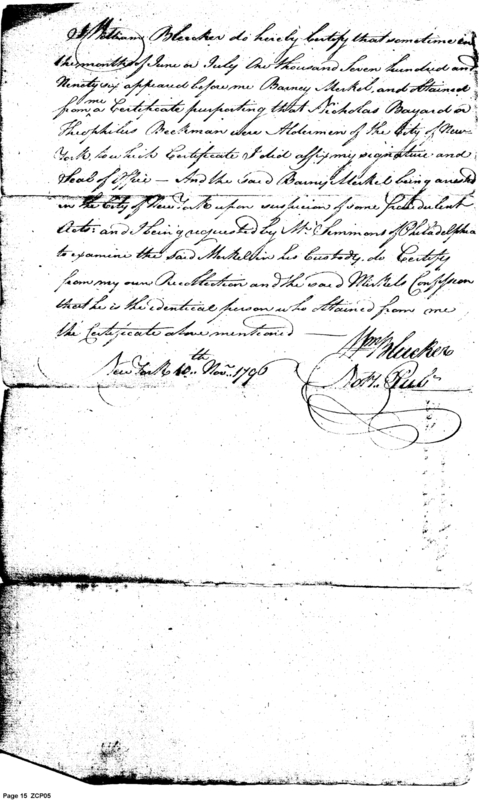 I William Bleecker do hereby Certify that sometime in
the months of June or July One thousand Seven hundred and
Ninety six appeared before me Barney Merkel, and obtained
from me a Certificate purporting that Nicholas Bayard or
Theophilus Beekman were Aldermen of the City of New-
York, to which Certificate I did affix my signature and
Seal of Office — And the said Barney Merkel being arrested
in the City of New York upon suspicion of some fraudulent
Acts: and I being requested by Mr. Chemmons of Philadelphia
to examine the said Merkel in his Custody, do Certify
from my own Recollection and the said Merkels Confession
that he is the identical person who obtained from me
the Certificate above mentioned —
Wm Bleecker
New York 10th Novr. 1796
Noty. Pub
Page 15 ZCP05